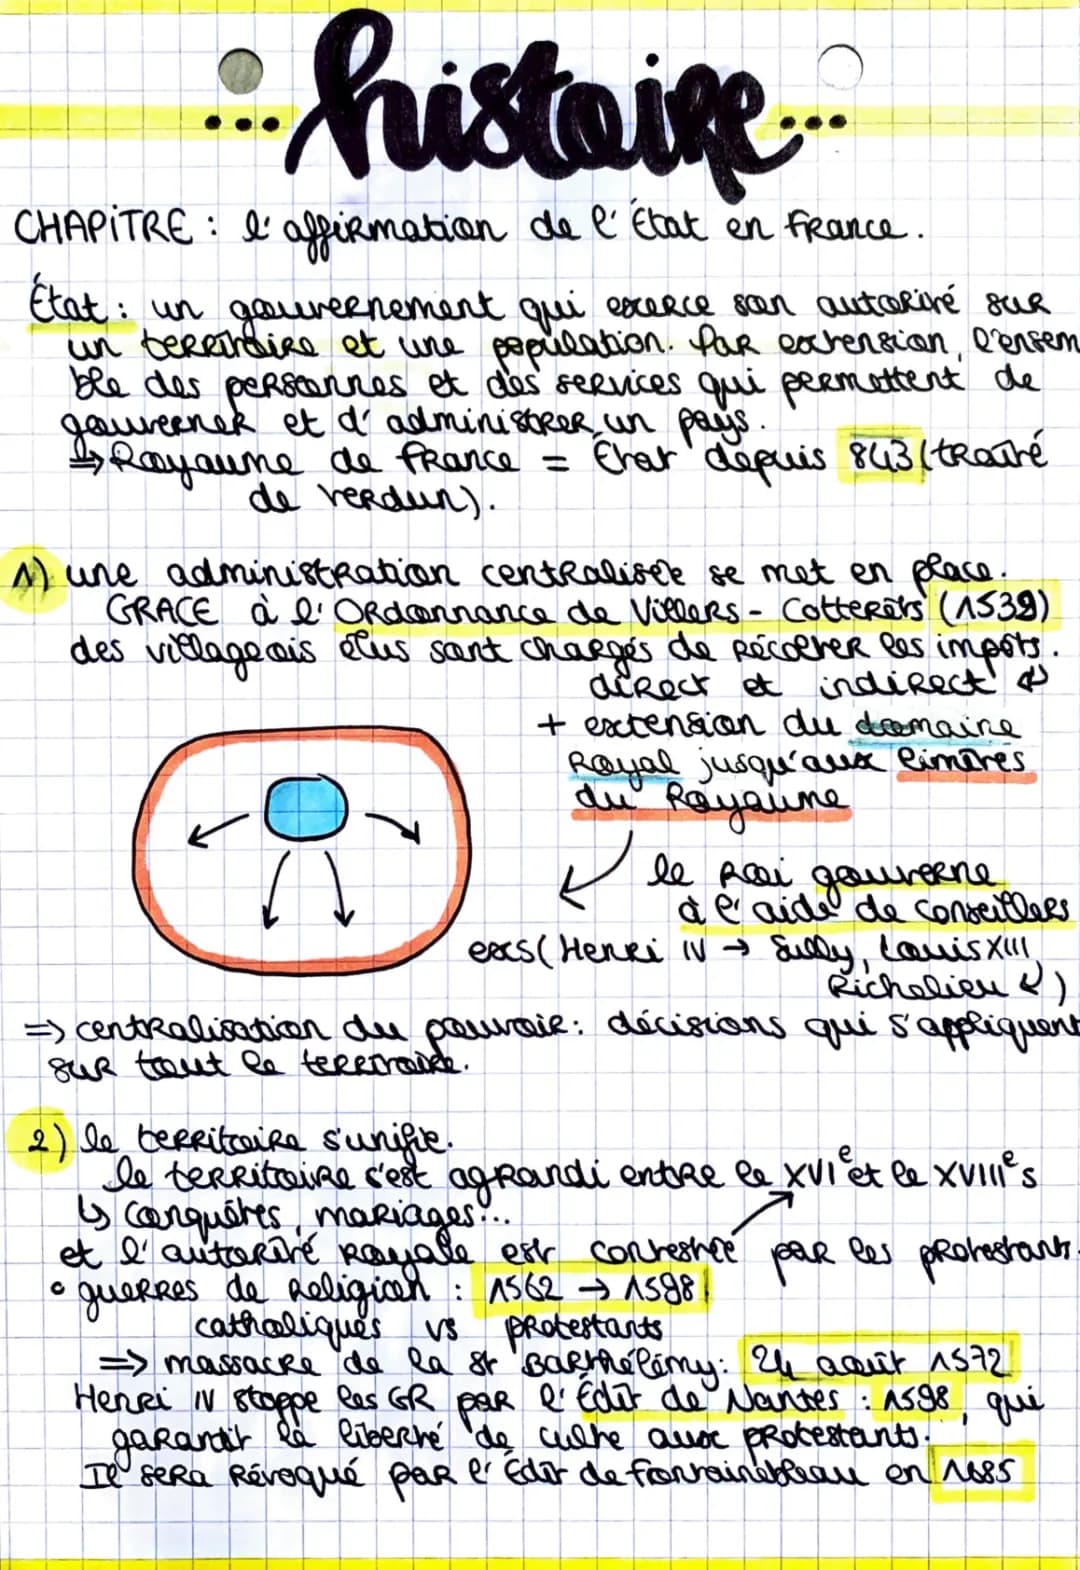 ... histoire ...
CHAPiTRE : l'affirmation de l'État en France.
État : un gouvernement qui exerce son autorité sur
un territoire et une population. Par extension, l'ensem
ble des personnes et des services qui permettent de
gouverner et d'administrer un pays.
↳ Royaume de France = État depuis 843 (traité
de Verdun).
1) une administration centralisée se met en place.
GRACE à l'Ordonnance de Villers-Cotterêts (1539)
des villageois élus sont chargés de récolter les impôts.
direct et indirect ↲
+ extension du domaine
Royal jusqu'aux limites
du Royaume
le roi gouverne
à l'aide de conseillers
exs (Henri IV → Sully, Louis XIII,
Richelieu ↲)
=> centralisation du pouvoir : décisions qui s'appliquent
sur tout le territoire.
2) le territoire s'unifie.
le territoire s'est agrandi entre le XVIe et le XVIIIe s
↳ conquêtes, mariages...
et l'autorité royale est contestée par les protestants.
• guerres de Religion : 1562 → 1598
catholiques vs protestants
=> massacre de la St Barthélémy : 24 août 1572
Henri IV stoppe les GR par l'Édit de Nantes : 1598, qui
garantit la liberté de culte aux protestants.
Il sera Révoqué par l'Édit de Fontainebleau en 1685